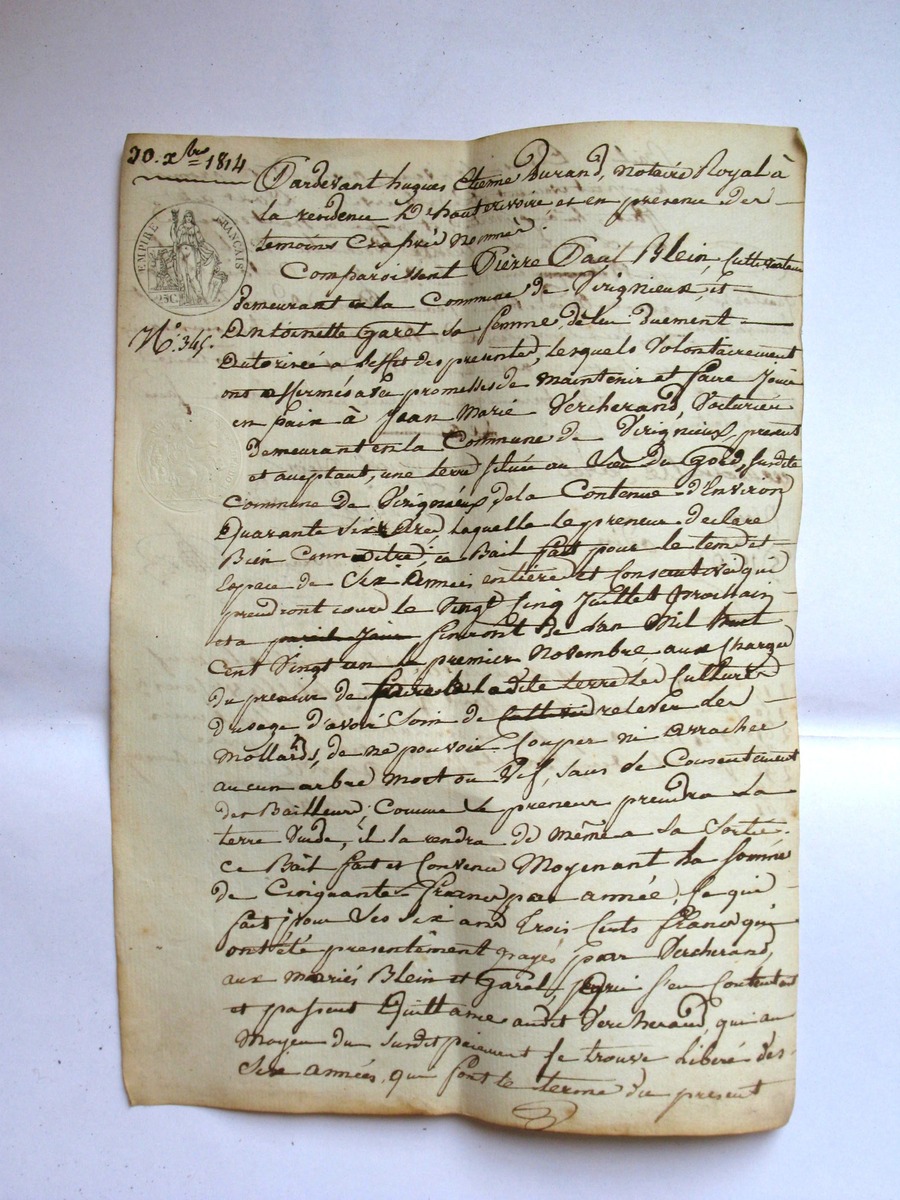 20. xbre 1814
Pardevant hugues Etienne Durand, Notaire Royal à
la residence d'hauterivoire et en presence des
temoins Ciaprès nommés.
EMPIRE FRANÇAIS
25C.
Comparoissent Pierre Paul Blein, Cultivateur
demeurant en la Commune de Virignieux, et
N.o 345.
Antoinette Garel sa femme de lui duement
Autorisée a l'effet des presentes, lesquels Volontairement
ont affermés avec promesses de maintenir et faire Jouir
en paix à Jean Marie Vercherand, Voiturier
demeurant en la Commune de Virignieux, present
et acceptant, une terre située au Lieu du Goed, Susdite
Commune de Virignieux de la Contenue d'Environ
Quarante Six Ares, laquelle le preneur declare
Bien Connoitre; ce Bail fait pour le tems et
Espace de Six Années entieres et Consecutives qui
prendront cours le Vingt Cinq Juillet prochain
et a pareil Jour finiront Be l'an Mil huit
Cent Vingt un le premier Novembre aux Charges
du preneur de faire la ladite terre les Cultures
d'usage d'avoir Soin de relever les
Mollards, de ne pouvoir Couper ni arracher
aucun arbre mort ou Vif, Sans le Consentement
des Bailleurs, Comme Le preneur prendra la
terre Vuide, il la rendra de même a sa Sortie.
ce Bail fait et Convenu Moyenant la Somme
de Cinquante francs par année, Ce qui
fait pour les six ans Trois Cents francs qui
ont été presentement payés par Vercherand,
aux mariés Blein et Garel, qui s'en Contentent
et passent Quittance audit Vercherand, qui au
Moyen du Susdit paiement se trouve Liberé des
Six années, qui font le terme du present